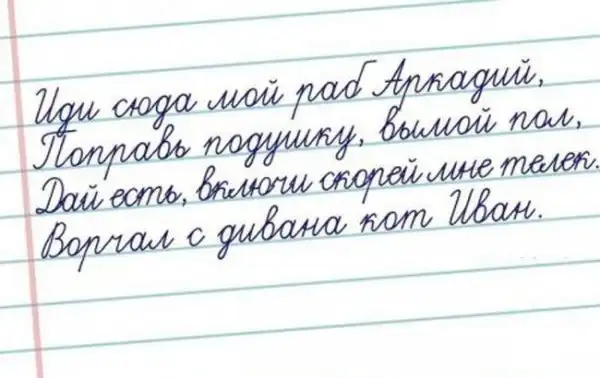 Иди сюда мой раб Аркадий,
Поправь подушку, вымой пол,
Дай есть, включи скорей мне телек.
Ворчал с дивана кот Иван.